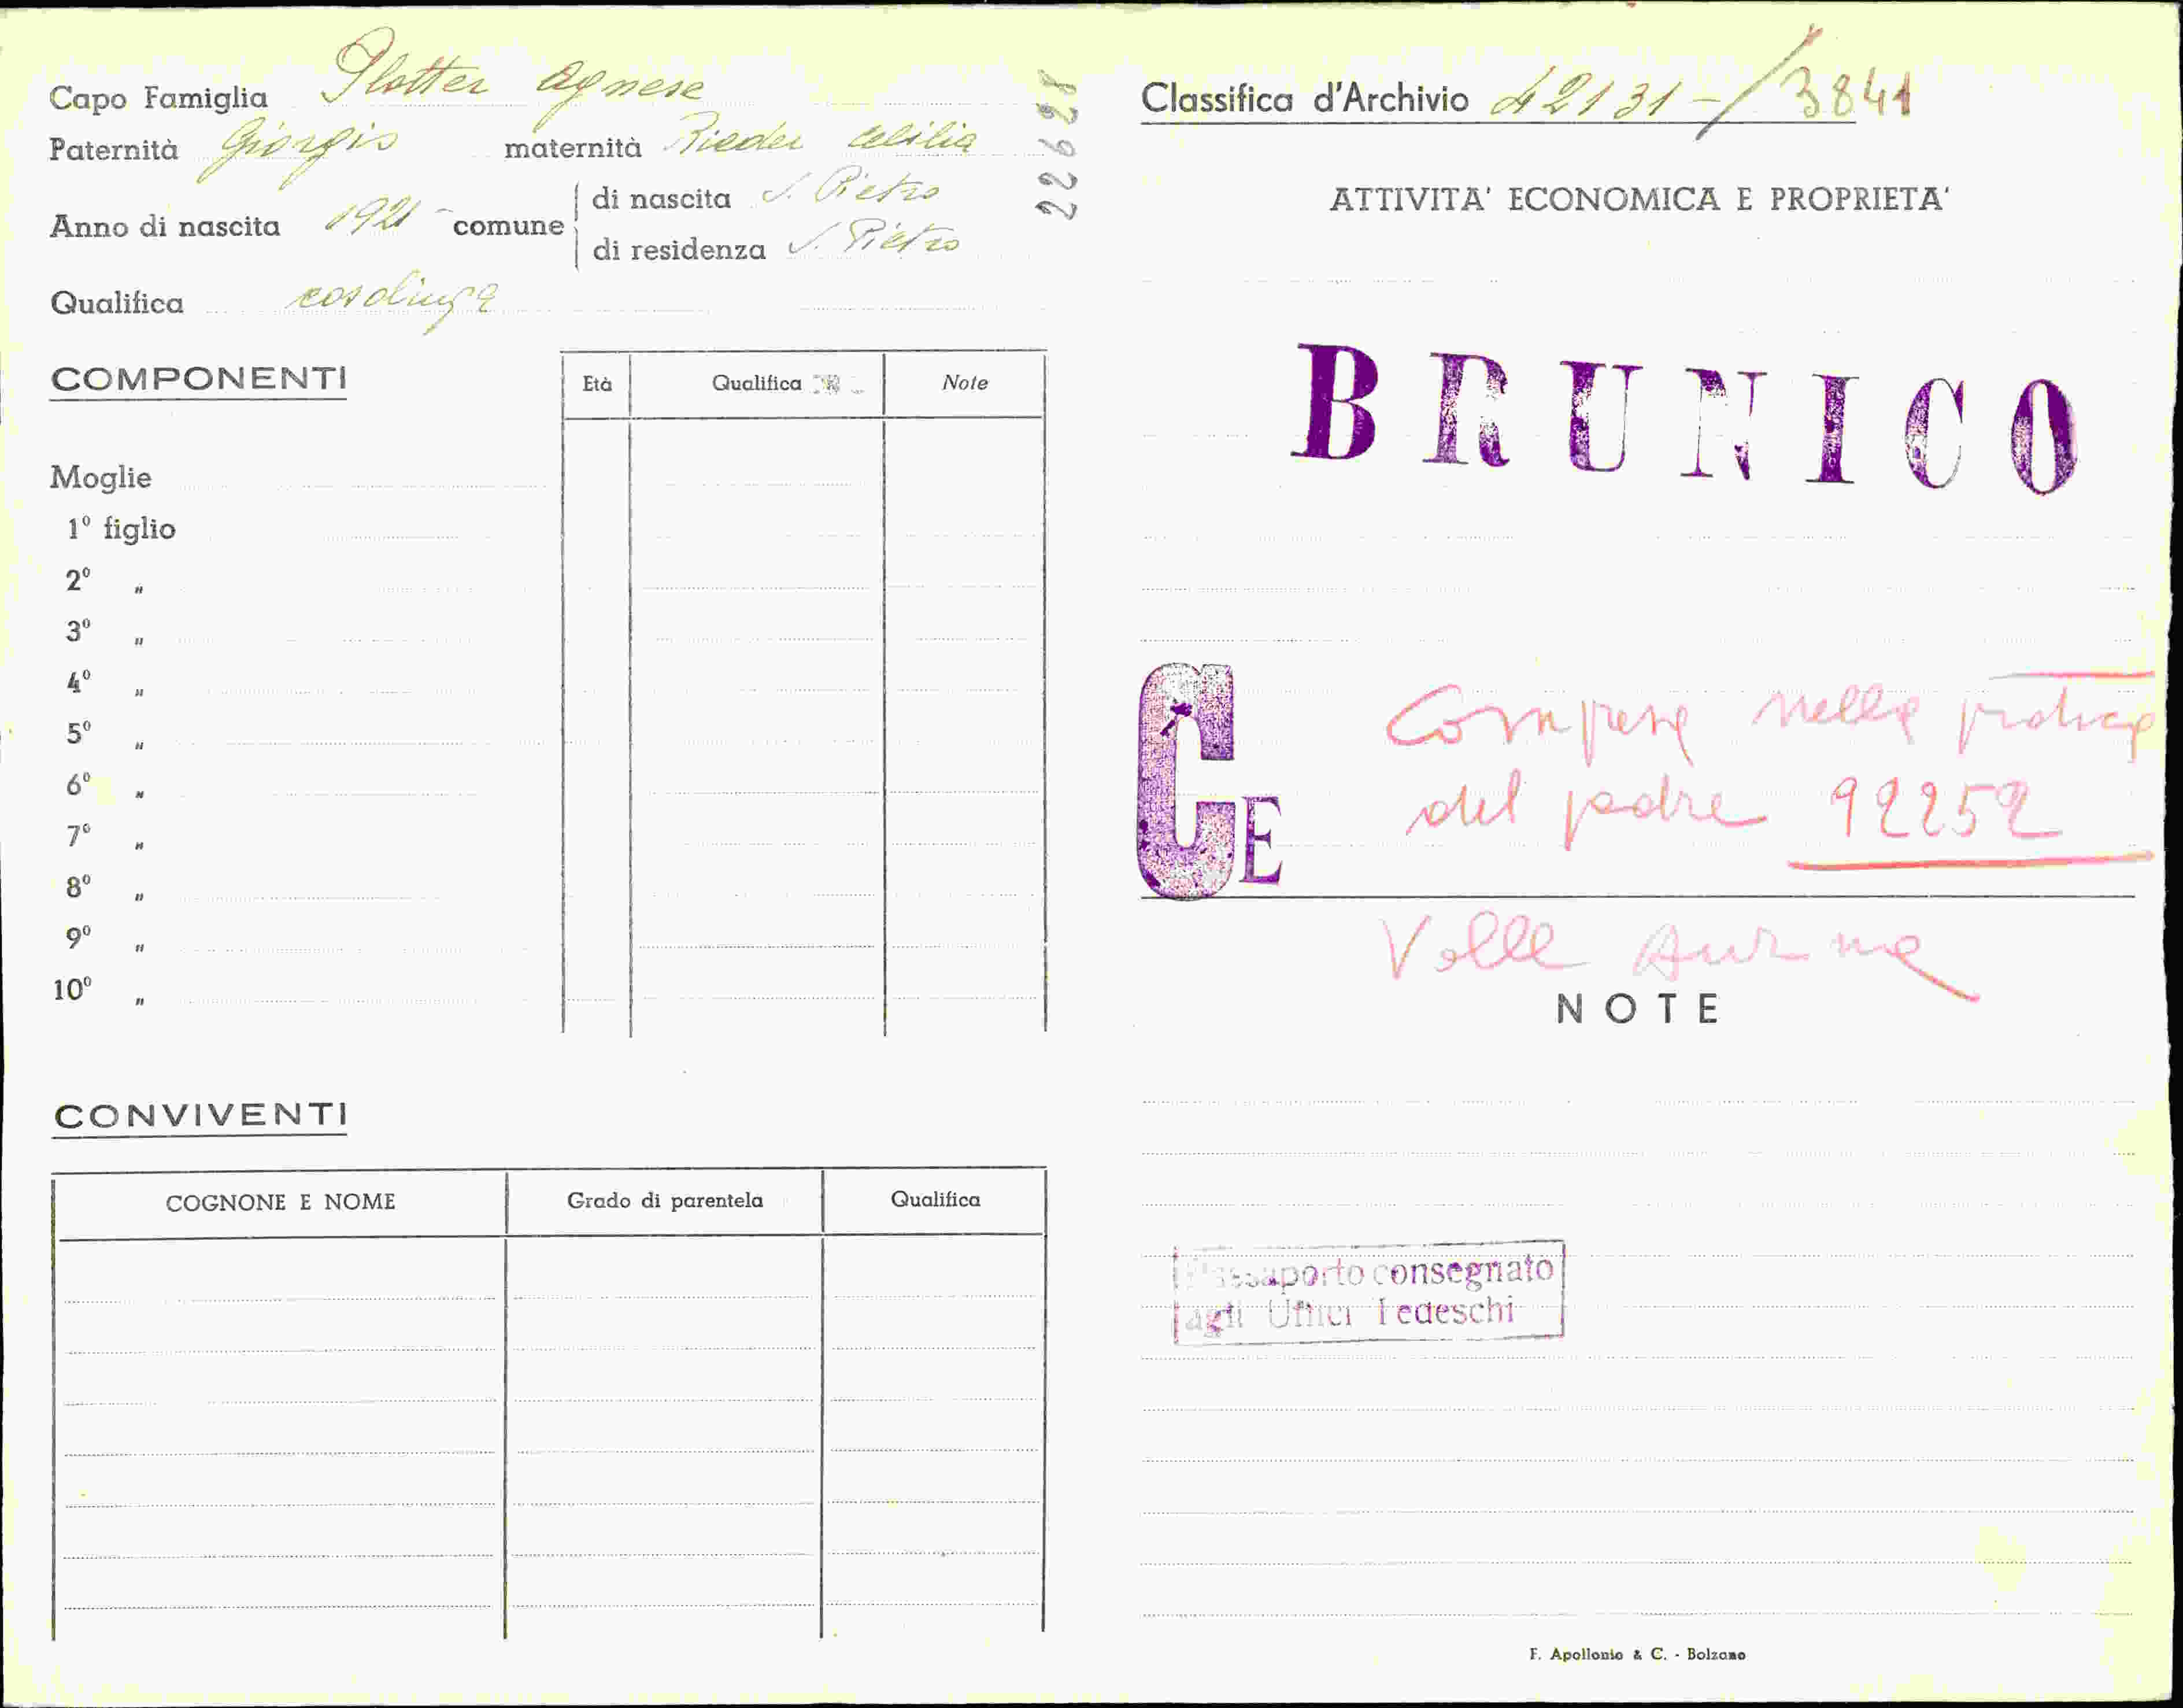 Capo Famiglia Plotter Agnese
Paternità Giorgio maternità Rieder Cecilia
Anno di nascita 1921 comune di nascita S. Pietro
di residenza S. Pietro
Qualifica casalinga
22628
COMPONENTI
Età Qualifica Note
Moglie
1º figlio
2º "
3º "
4º "
5º "
6º "
7º "
8º "
9º "
10º "
CONVIVENTI
COGNONE E NOME Grado di parentela Qualifica
Classifica d'Archivio 42131-/3841
ATTIVITA' ECONOMICA E PROPRIETA'
BRUNICO
CE
Compare nella pratica
del padre 92252
Valle Aurina
NOTE
Passaporto consegnato
agli Uffici Tedeschi
F. Apollonio & C. - Bolzano